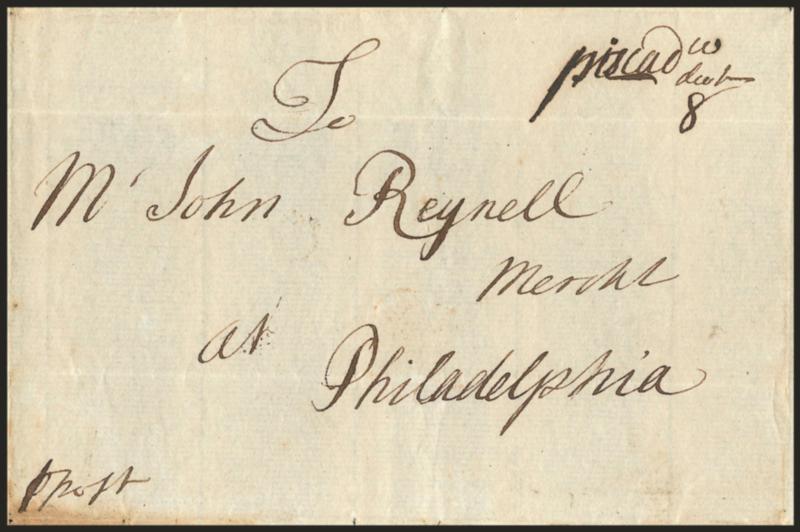 piscad w
dwt
8
To
Mr John Reynell
Mercht
at
Philadelphia
⅌ post